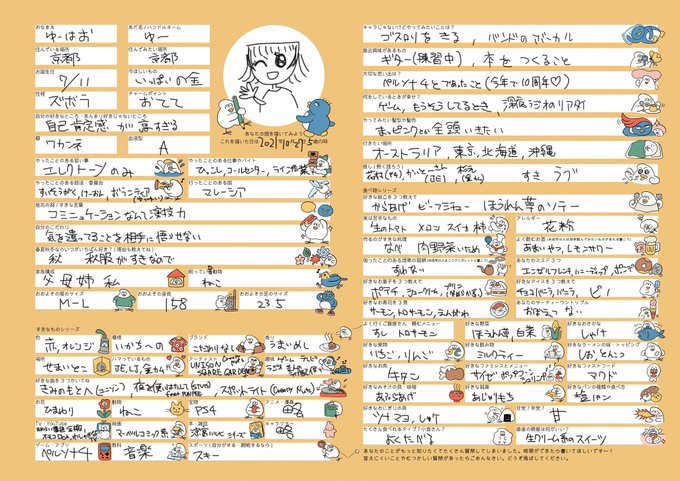 おなまえ
ゆーはお
あだ名 / ハンドルネーム
ゆー
住んでいる場所
京都
住んでみたい場所
京都
お誕生日
7/11
今ほしいもの
いっぱいの金
性格
ズボラ
チャームポイント
おてて
自分の好きなところ・あんまり好きじゃないところ
自己肯定感が高すぎる
ワカンネ
血液型
A
あなたの顔を描いてみよう
これを描いた日は
やったことのある習い事
エレクトーンのみ
やったことのある仕事やバイト
ひっこし,コールセンター,
やったことのある部活・委員会
すいそうがく,けーおん,ボランティア
行ったことのある国
マレーシア
座右の銘 / すきな言葉
コミュニケーションなんて演技力
自分のこだわり
気を遣ってることを相手に悟らせない
秋 秋服がすきなので
家族構成
父 母 姉 私
飼っている動物
ねこ
おおよその服のサイズ
M-L
おおよその身長
158
おおよその足のサイズ
23.5
すきなものシリーズ
色
赤,オレンジ
いか,うへの
ブランド
こだわりなし
香り
うまいめし
場所
せまいとこ
ハマっているもの
アーティスト
UNISON SQUARE GARDEN
趣味
ゲーム テレビ
好きな曲を3つかいてね
きみのもとへ(ユニゾン),
お花
ひまわり
動物
ねこ
宝物
PS4
アニメ・漫画
TV・YouTube
映画
マーベルコミック系
本・雑誌
キャラクター
ゲーム・アプリ
ペルソナ4
教科
音楽
スポーツ(自分がする・観戦するなら)
スキー
キャラじゃないけどやってみたいことは?
ゴスロリをきる, バンドのボーカル
最近興味があるもの
ギター(練習中), 本をつくること
大切な思い出は?
ペルソナ4とであったこと(今年で10周年♡)
何をしているときが幸せ?
ゲーム, もうそうしてるとき, 深夜ラジオのリアタイ
やってみたい髪型や髪色
まっピンクとか金頭いきたい
行きたい場所
オーストラリア, 東京, 北海道, 沖縄
推し(熱く語ろう)
食べ物シリーズ
好きな献立を3つ教えて
からあげ ビーフシチュー ほうれん草のソテー
実は苦手なもの
生のトマト メロン スイカ 柿
アレルギー
花粉
作るのがすきな料理
なべ 肉野菜いため
あまいやつ,レモンサワー
すわない
あなたのミスド3つ
エンゼルフレンチ,ハニーディップ,
好きなお菓子を3つ教えて
ポテチ シュークリーム
好きなアイスを3つ教えて
チョコバニラ,バニラ, ピノ
好きなお寿司を3貫
サーモン,トロサーモン,えんがわ
あなたのサーティーワントリプル
おぼえてない
よく行くご飯屋さん・頼むメニュー
すし トロサーモン
好きな野菜
ほうれん草,白菜
好きなおさかな
しゃけ
好きな果物
いちご,りんご
好きな飲み物
ミルクティー
好きなラーメンの味・トッピング
しお とんこつ
好きなお肉
牛タン
好きなファミレスとメニュー
サイゼ ポップコーンシュリンプ
好きなファストフード
マクド
好きなお味噌汁の具・味噌
あぶらあげ
好きなお花見
あじつけもち
好きなパンの種類や食べ方
塩パン
好きなおにぎりの具
ツナマヨ,しゃけ
甘党?辛党?
甘
たくさん食べれるタイプ?小食さん?
よくたべる
最後の晩餐は何がいい?
生クリーム系のスイーツ
あなたのことがもっと知りたくてたくさん質問してしまいました。時間ができたら書いてほしいです〜!
答えにくいことやむつかしい質問があったらごめんなさい。どうぞ飛ばしてください。